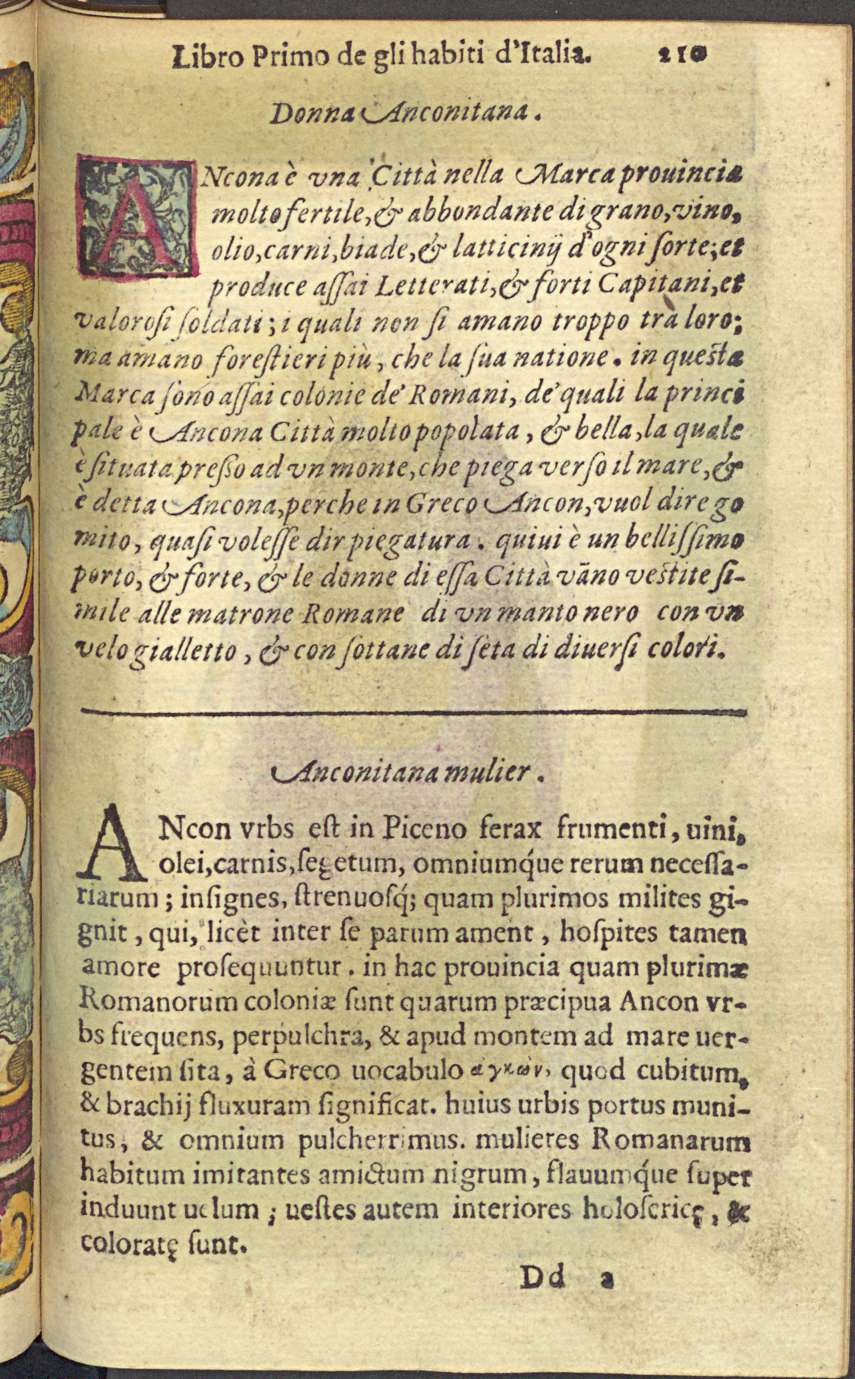 Libro Primo de gli habiti d'Italia. 210
Donna Anconitana.
ANcona è vna Città nella Marca prouincia
molto fertile, & abbondante di grano, vino,
olio, carni, biade, & latticinij d'ogni ſorte; et
produce aſſai Letterati, & forti Capitani, et
valoroſi ſoldati; i quali non ſi amano troppo trà loro;
ma amano foreſtieri più, che la ſua natione. in queſta
Marca ſono aſſai colonie de' Romani, de' quali la princi
pale è Ancona Città molto popolata, & bella, la quale
è ſituata preſſo ad vn monte, che piega verſo il mare, &
è detta Ancona, perche in Greco Ancon, vuol dire go
mito, quaſi voleſſe dir piegatura. quiui è un belliſſimo
porto, & forte, & le donne di eſſa Città vāno veſtite ſi-
mile alle matrone Romane di vn manto nero con vn
velo gialletto, & con ſottane di ſeta di diuerſi colori.
Anconitana mulier.
ANcon vrbs eſt in Piceno ferax frumenti, uini,
olei, carnis, ſegetum, omniumq́ue rerum neceſſa-
riarum; inſignes, ſtrenuoſq́; quam plurimos milites gi-
gnit, qui, licèt inter ſe parum ament, hoſpites tamen
amore proſequuntur. in hac prouincia quam plurimæ
Romanorum coloniæ ſunt quarum præcipua Ancon vr-
bs frequens, perpulchra, & apud montem ad mare uer-
gentem ſita, à Greco uocabulo αγκων, quod cubitum,
& brachij fluxuram ſignificat. huius urbis portus muni-
tus, & omnium pulcherrimus. mulieres Romanarum
habitum imitantes amictum nigrum, flauumq́ue ſuper
induunt uelum; ueſtes autem interiores holoſericę, &
coloratę ſunt.
Dd 2